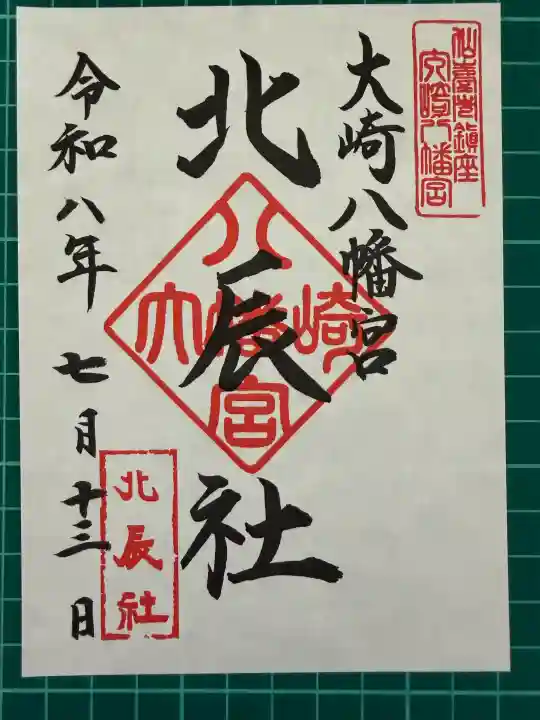 仙臺總鎮座
大崎八幡宮
大崎八幡宮
北辰社
八
大幡崎
宮
令和八年七月十三日
北辰社